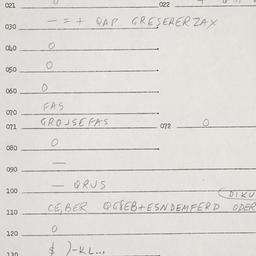 021 0 022
030 — = + QAP GRESERERZAX
040 0
050 0
060 0
070 FAS
071 GROJSEFAS 072 0
080 0
090 —
100 — QRUS
110 CE,BER QGSEB+ESNDEMFERD ODER
120 0
130 $ )-KL...